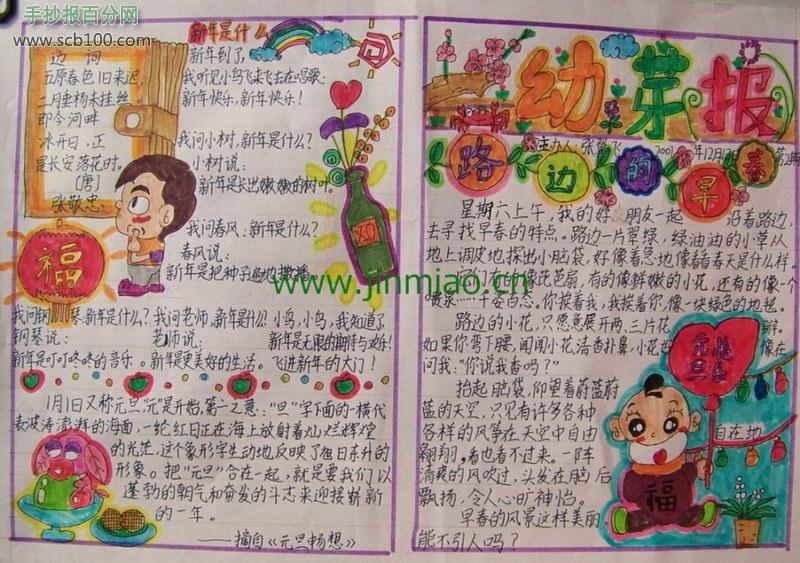 手抄报百分网
www.scb100.com
新年是什么
边词
五原春色旧来迟,
二月垂杨未挂丝。
即今河畔
冰开日,正
是长安落花时。
(唐)
张敬忠
新年到了
我听见小鸟飞来飞去在唱歌:
新年快乐,新年快乐!
我问小树,新年是什么?
小树说:
新年是长出嫩嫩的树叶。
我问春风:新年是什么?
春风说:
新年是把种子
XO
福
我问钢琴:新年是什么?
钢琴说:
新年是叮叮咚咚的音乐。
我问老师,新年是什么?
老师说:
新年是更美好的生活。
小鸟,小鸟,我知道了
新年是无限的期待与欢乐!
飞进新年的大门!
1月1日又称元旦,“元”是开始,第一之意:“旦”字下面的一横代
表波涛澎湃的海面,一轮红日正在海上放射着灿烂辉煌
的光芒,这个象形字生动地反映了旭日东升的
形象。把“元旦”合在一起,就是要我们以
蓬勃的朝气和奋发的斗志来迎接崭新
的一年。
——摘自《元旦畅想》
幼芽报
主办人:张
年12月12
第2期
路边的早春
星期六上午,我的好朋友一起
沿着路边,
去寻找早春的特点。路边一片翠绿,绿油油的小草从
地上调皮地探出小脑袋,好像着急地像看看春天是什么样。
有的像鲜嫩的小花,还有的像一个
千姿百态。你挨着我,我挨着你,像一块绿色的地毯。
路边的小花,只愿意展开两、三片花
瓣。
如果你弯下腰,闻闻小花,清香扑鼻,小花好
像在
问我:“你说我香吗?”
抬起脑袋,仰望着蔚蓝蔚
蓝的天空,只见有许多各种
各样的风筝在天空中自由
自在地
翱翔。看也看不过来。一阵
清爽的风吹过,头发在脑后
飘扬,令人心旷神怡。
早春的风景这样美丽,
能不引人吗?
元旦
福
www.jinmiao.cn